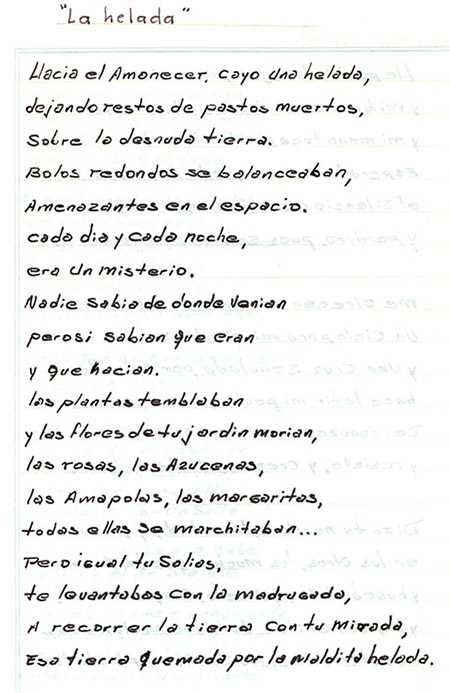 "La helada"
Hacia el Amanecer, cayo una helada,
dejando restos de pastos muertos,
Sobre la desnuda tierra.
Bolos redondos se balanceaban,
Amenazantes en el espacio.
cada dia y cada noche,
era un misterio.
Nadie sabia de donde venian
perosi sabian que eran
y que hacian.
las plantas temblaban
y las flores de tu jardin morian,
las rosas, las Azucenas,
las Amapolas, las margaritas,
todas ellas se marchitaban...
Pero igual tu Salias,
te levantabas con la madrugada,
A recorrer la tierra con tu mirada,
Esa tierra quemada por la maldita helada.